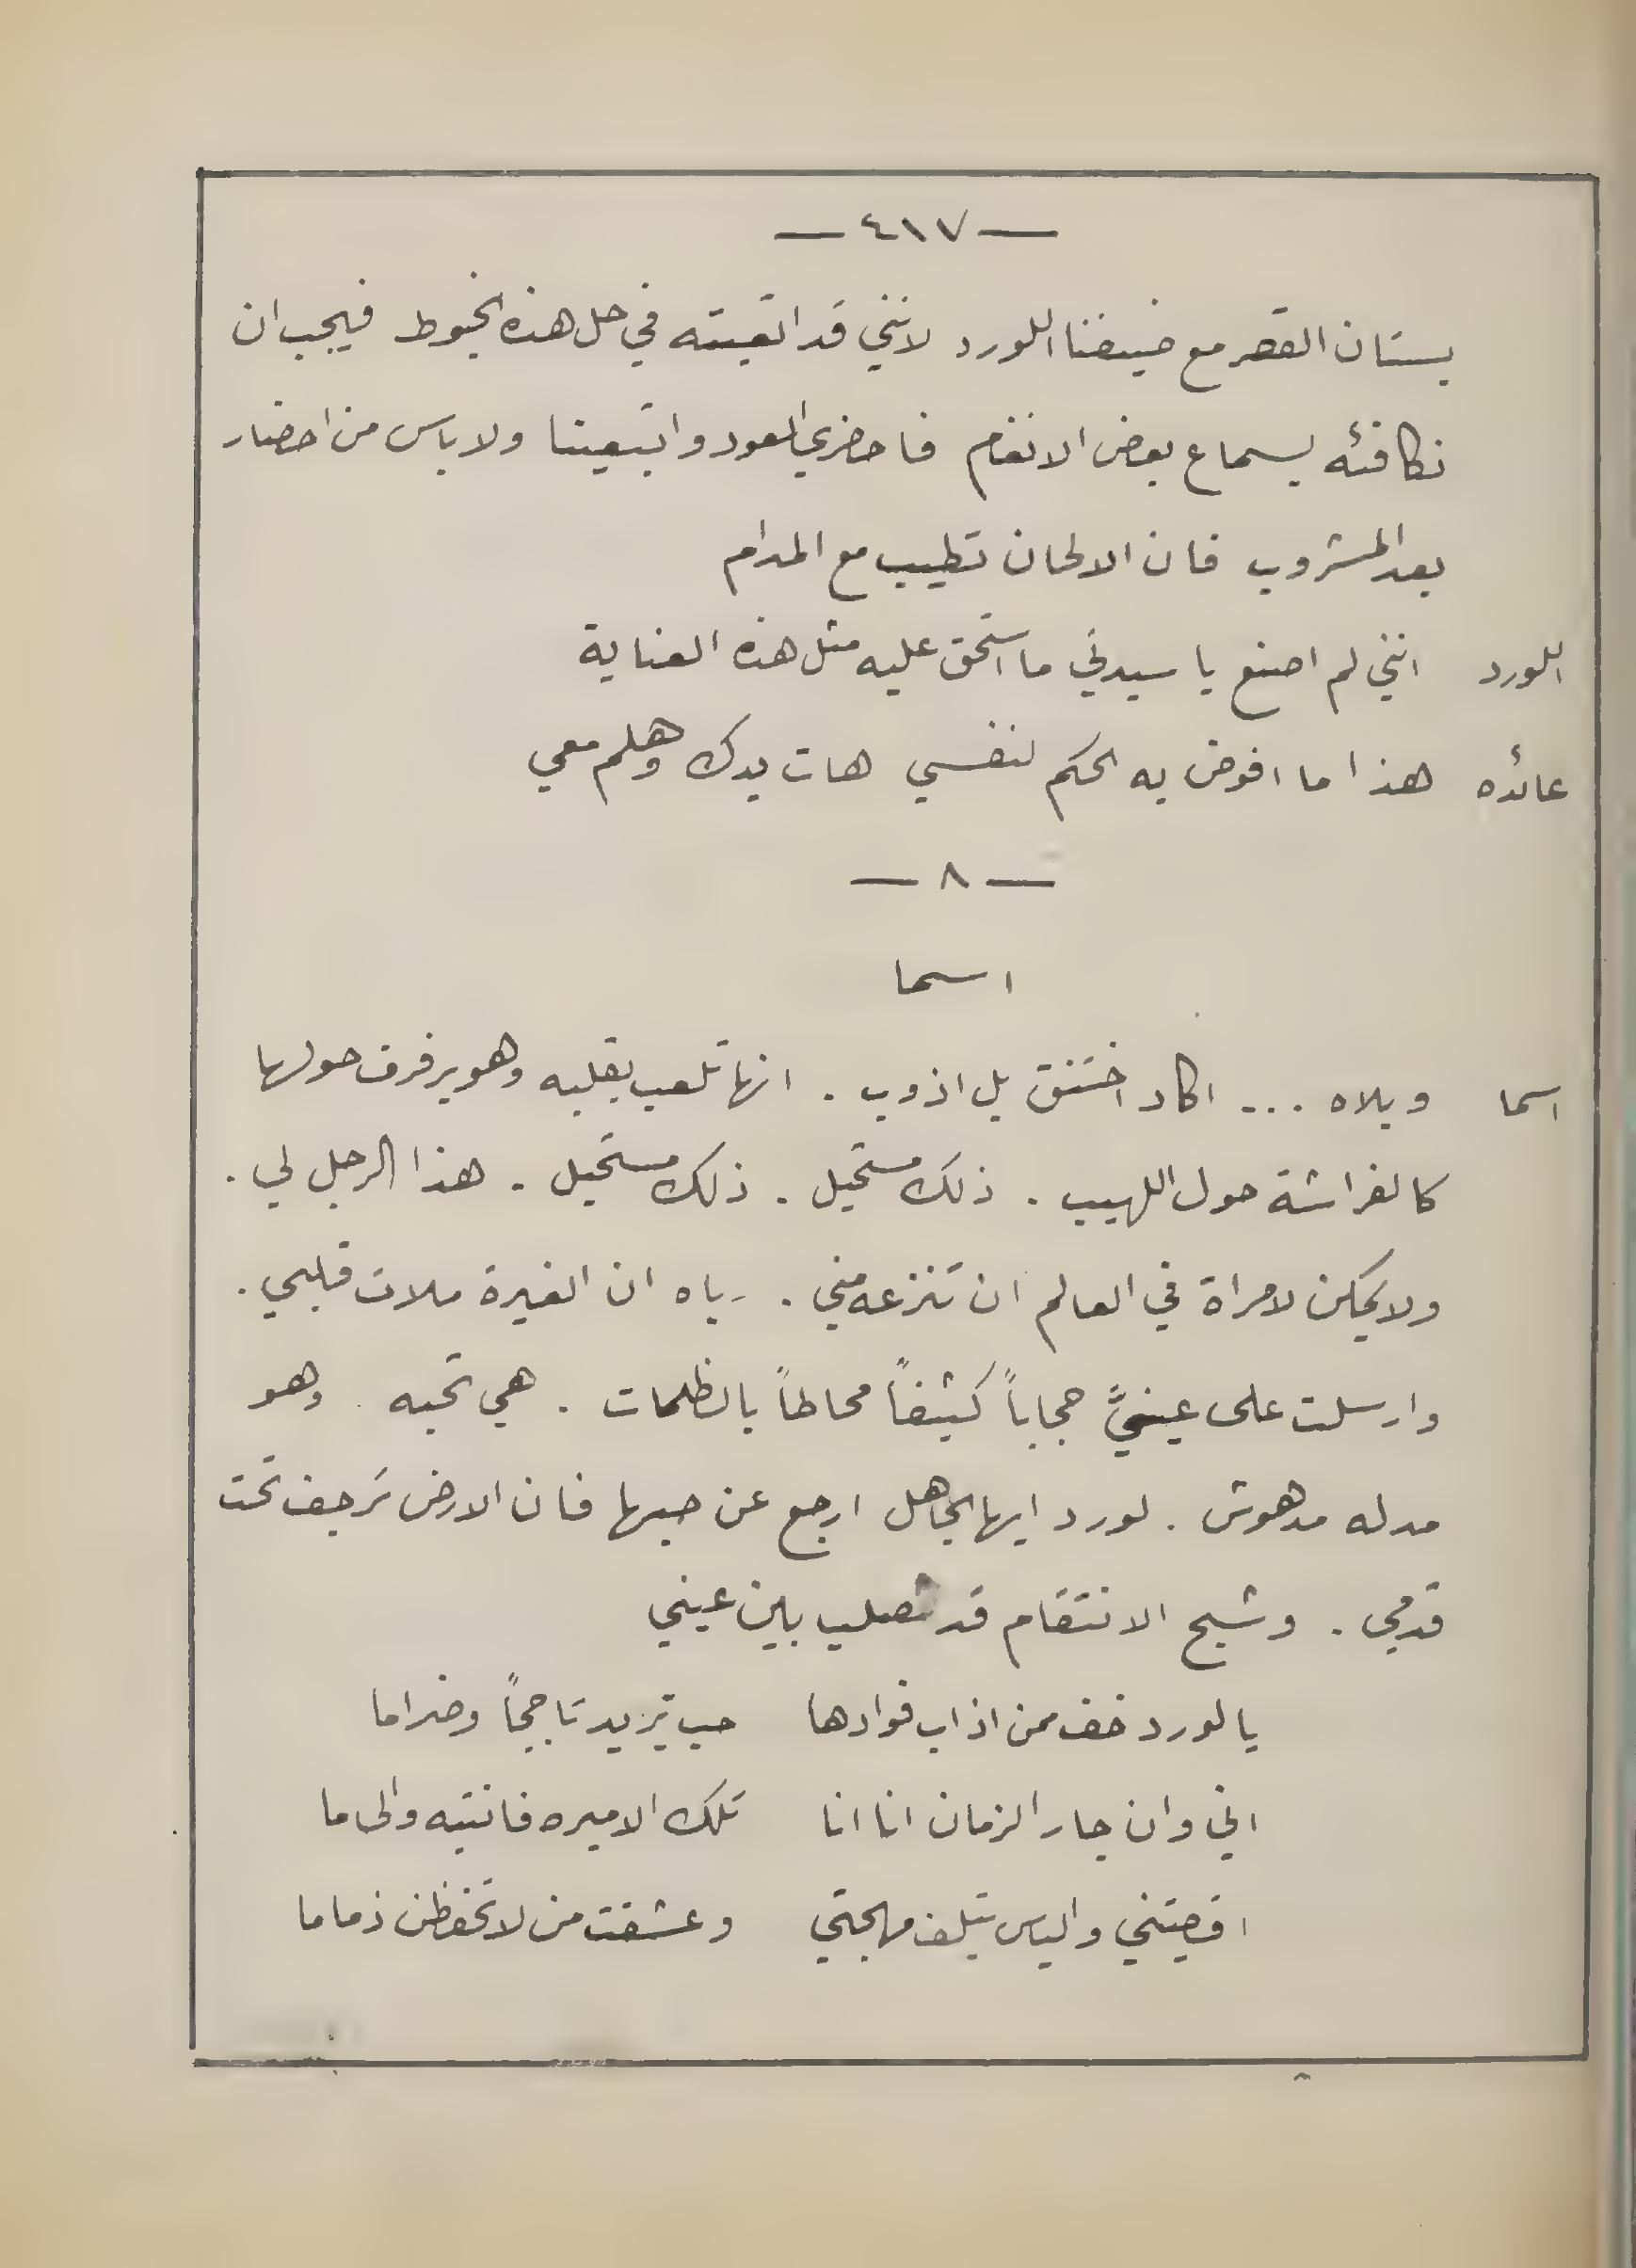 — ٤١٧ —
بستان القصر مع ضيفنا اللورد لانني قد اتعبته في حل هذه الخيوط فيجب ان
نكافئه بسماع بعض الانغام فاحضري العود واتبعينا ولا باس من احضار
بعد المشروب فان الالحان تطيب مع المدام
اللورد انني لم اصنع يا سيدتي ما استحق عليه مثل هذه العناية
عائده هذا ما افوض به الحكم لنفسي هات يدك وهلم معي
— ٨ —
اسما
اسما ويلاه ... اكاد اختنق بل اذوب . انها تلعب بقلبه وهو يرفرف حولها
كالفراشة حول اللهيب . ذلك مستحيل . ذلك مستحيل . هذا الرجل لي .
ولا يمكن لامراة في العالم ان تنزعه مني . رباه ان الغيرة ملات قلبي .
وارسلت على عينيَّ حجاباً كثيفاً محاطاً بالظلمات . هي تحبه . وهو
مدله مدهوش . لورد ايها الجاهل ارجع عن حبها فان الارض ترجف تحت
قدمي . وشبح الانتقام قد تصلب بين عيني
يا لورد خف ممن اذاب فوادها حب يزيد تاججاً وضراما
اني وان جار الزمان انا انا تلك الاميره فانتبه والى ما
اقصيتني والياس يتلف مهجتي وعشقت من لا تحفظن ذماما